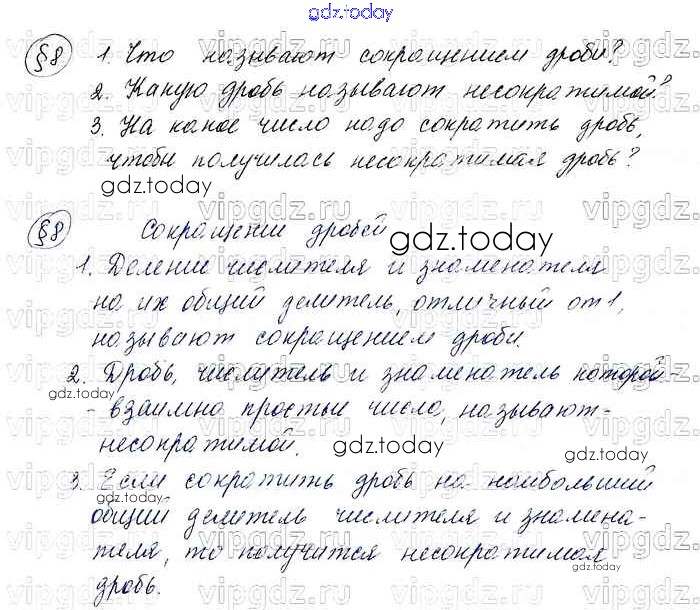 gdz.today
§8 1. Что называют сокращением дроби?
2. Какую дробь называют несократимой?
3. На какое число надо сократить дробь,
чтобы получилась несократимая дробь?
gdz.today
§8 Сокращение дробей
gdz.today
1. Деление числителя и знаменателя
на их общий делитель, отличный от 1,
называют сокращением дроби.
2. Дробь, числитель и знаменатель которой -
- взаимно простые числа, называют
несократимой.
gdz.today
gdz.today
3. Если сократить дробь на наибольший
gdz.today
общий делитель числителя и знамена-
теля, то получится несократимая
дробь.
gdz.today